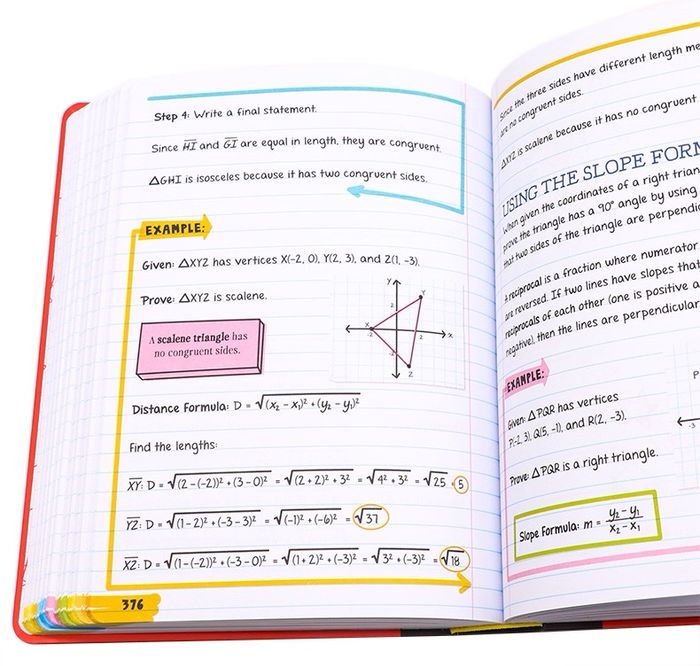 Step 4: Write a final statement.
Since H̅I̅ and G̅I̅ are equal in length, they are congruent.
△GHI is isosceles because it has two congruent sides.
EXAMPLE:
Given: △XYZ has vertices X(-2, 0), Y(2, 3), and Z(1, -3).
Prove: △XYZ is scalene.
A scalene triangle has
no congruent sides.
Y
Y
2
X
-2
2
X
-2
Z
Distance Formula: D = √(x₂ - x₁)² + (y₂ - y₁)²
Find the lengths:
X̅Y̅: D = √(2 - (-2))² + (3 - 0)² = √(2 + 2)² + 3² = √4² + 3² = √25 = 5
Y̅Z̅: D = √(1 - 2)² + (-3 - 3)² = √(-1)² + (-6)² = √37
X̅Z̅: D = √(1 - (-2))² + (-3 - 0)² = √(1 + 2)² + (-3)² = √3² + (-3)² = √18
376
Since the three sides have different length
are no congruent sides.
△XYZ is scalene because it has no congruent
USING THE SLOPE
When given the coordinates of a right
prove the triangle has a 90° angle by using
that two sides of the triangle are
A reciprocal is a fraction where numerator
are reversed. If two lines have slopes that
reciprocals of each other (one is positive
negative), then the lines are perpendicular
EXAMPLE:
Given: △PQR has vertices
P(-2, 3), Q(5, -1), and R(2, -3).
Prove: △PQR is a right triangle.
P
-3
Slope Formula: m = (y₂ - y₁)/(x₂ - x₁)